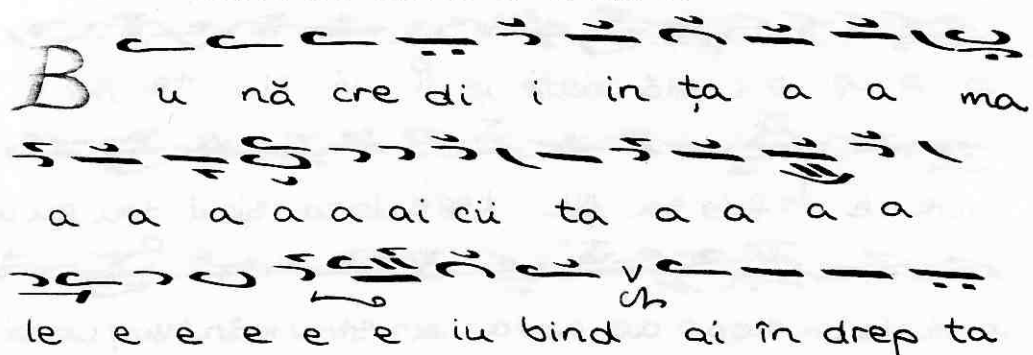 B u nă cre di i in ța a a ma
a a a a a ai cu ta a a a a
le e e e e e iu bind ai în drep ta